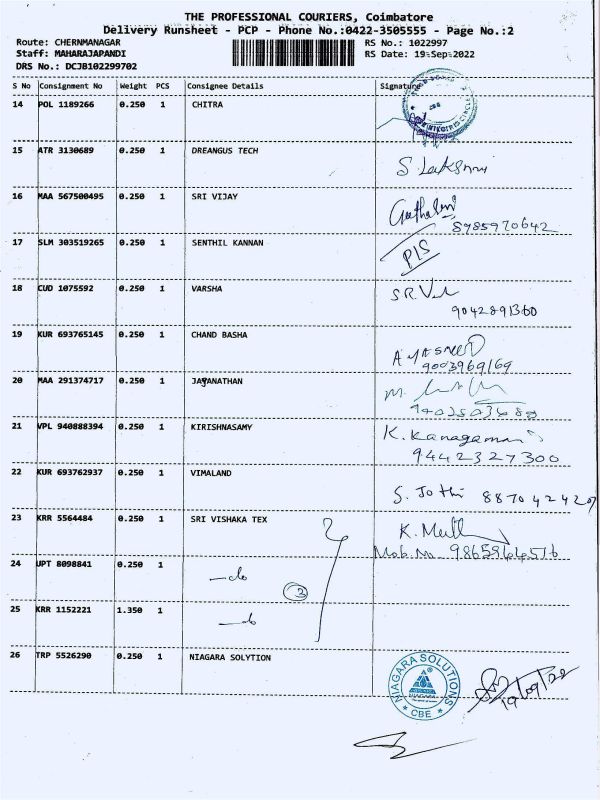 THE PROFESSIONAL COURIERS, Coimbatore
Delivery Runsheet - PCP - Phone No.:0422-3505555 - Page No.:2
Route: CHERNMANAGAR RS No.: 1022997
Staff: MAHARAJAPANDI RS Date: 19-Sep-2022
DRS No.: DCJB102299702
S No Consignment No Weight PCS Consignee Details Signature
14 POL 1189266 0.250 1 CHITRA
15 ATR 3130689 0.250 1 DREANGUS TECH S. Lakshmi
16 MAA 567500495 0.250 1 SRI VIJAY
8985970642
17 SLM 303519265 0.250 1 SENTHIL KANNAN PLS
18 CUD 1075592 0.250 1 VARSHA
9042891360
19 KUR 693765145 0.250 1 CHAND BASHA
9003969169
20 MAA 291374717 0.250 1 JAYANATHAN
21 VPL 940888394 0.250 1 KIRISHNASAMY K. Kanagamani
9442327300
22 KUR 693762937 0.250 1 VIMALAND S. Jothi
23 KRR 5564484 0.250 1 SRI VISHAKA TEX
Mob. No 9865964516
24 UPT 8098841 0.250 1 -do 3
25 KRR 1152221 1.350 1 -do
26 TRP 5526290 0.250 1 NIAGARA SOLYTION
NIAGARA SOLUTIONS
CBE
19/09/22